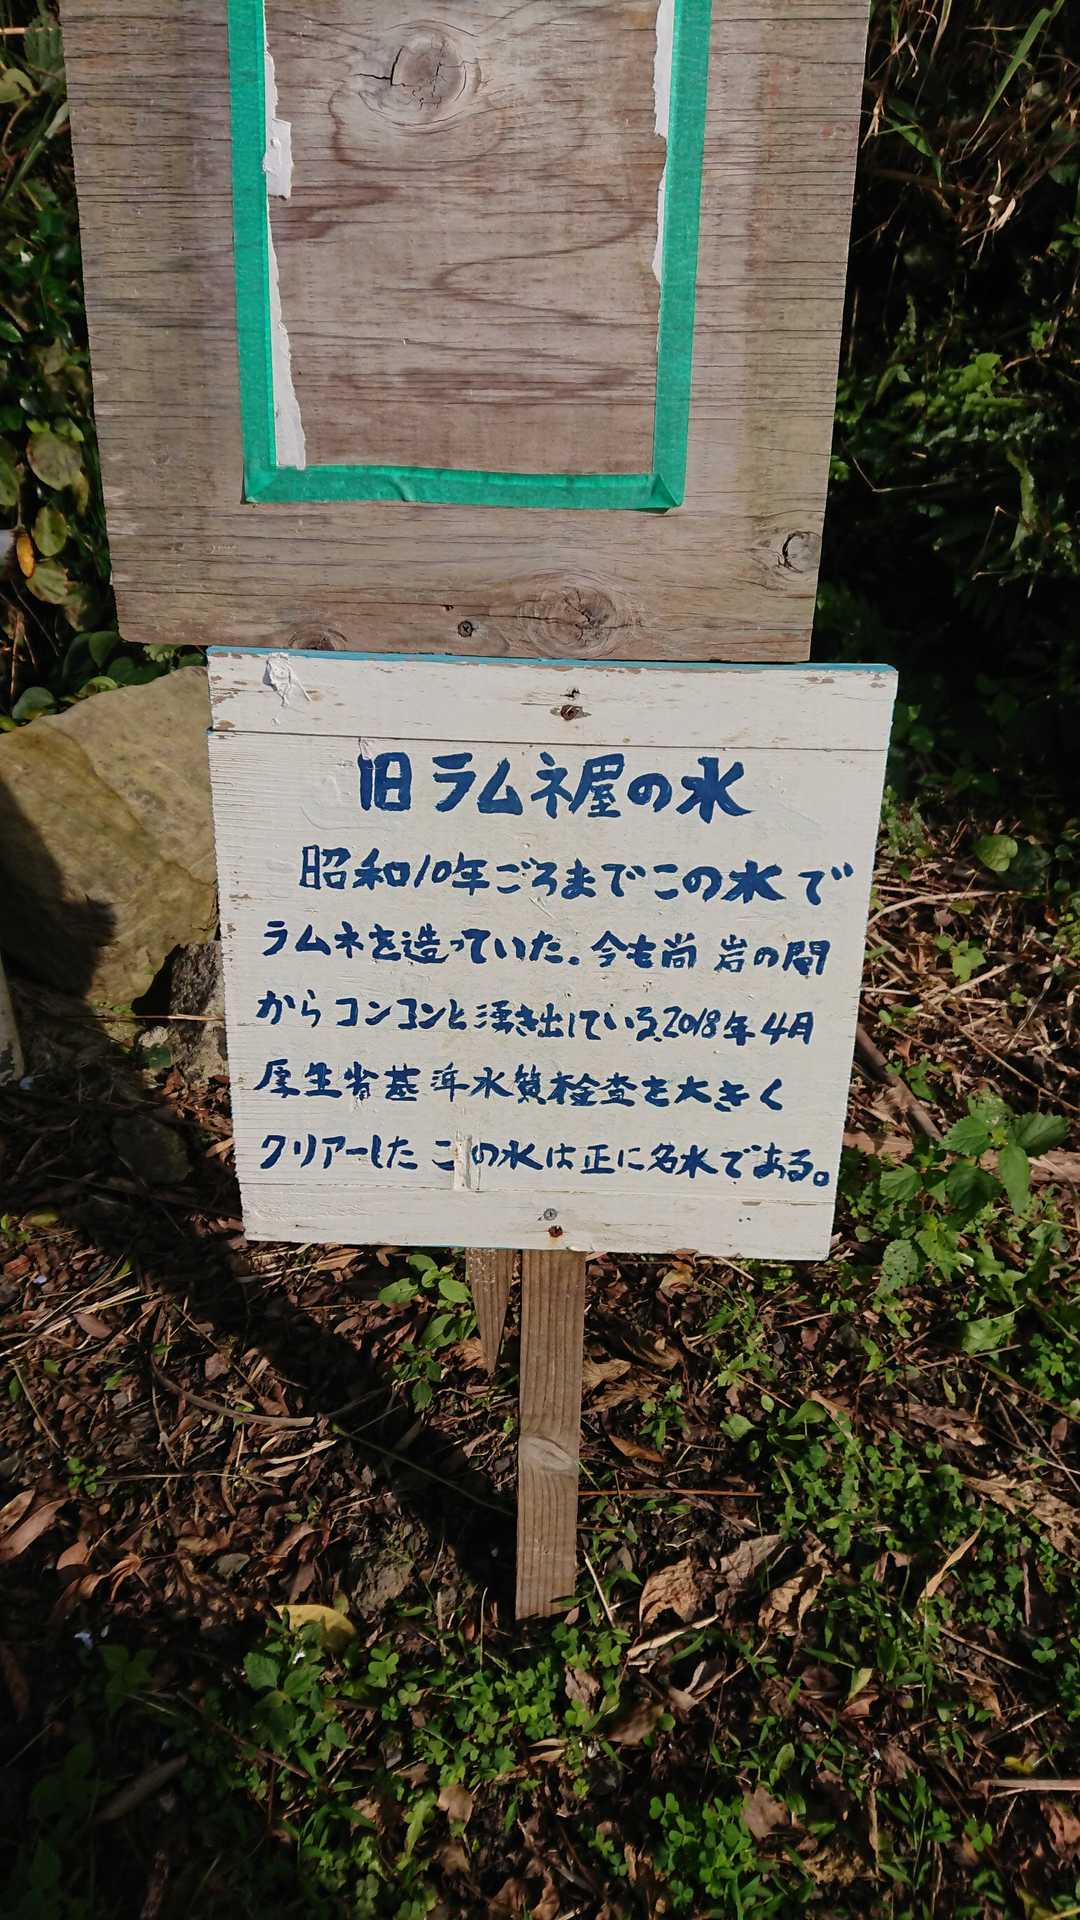 旧ラムネ屋の水
昭和10年ごろまでこの水で
ラムネを造っていた。今も尚 岩の間
からコンコンと湧き出している。2018年4月
厚生省基準水質検査を大きく
クリアーした この水は正に名水である。